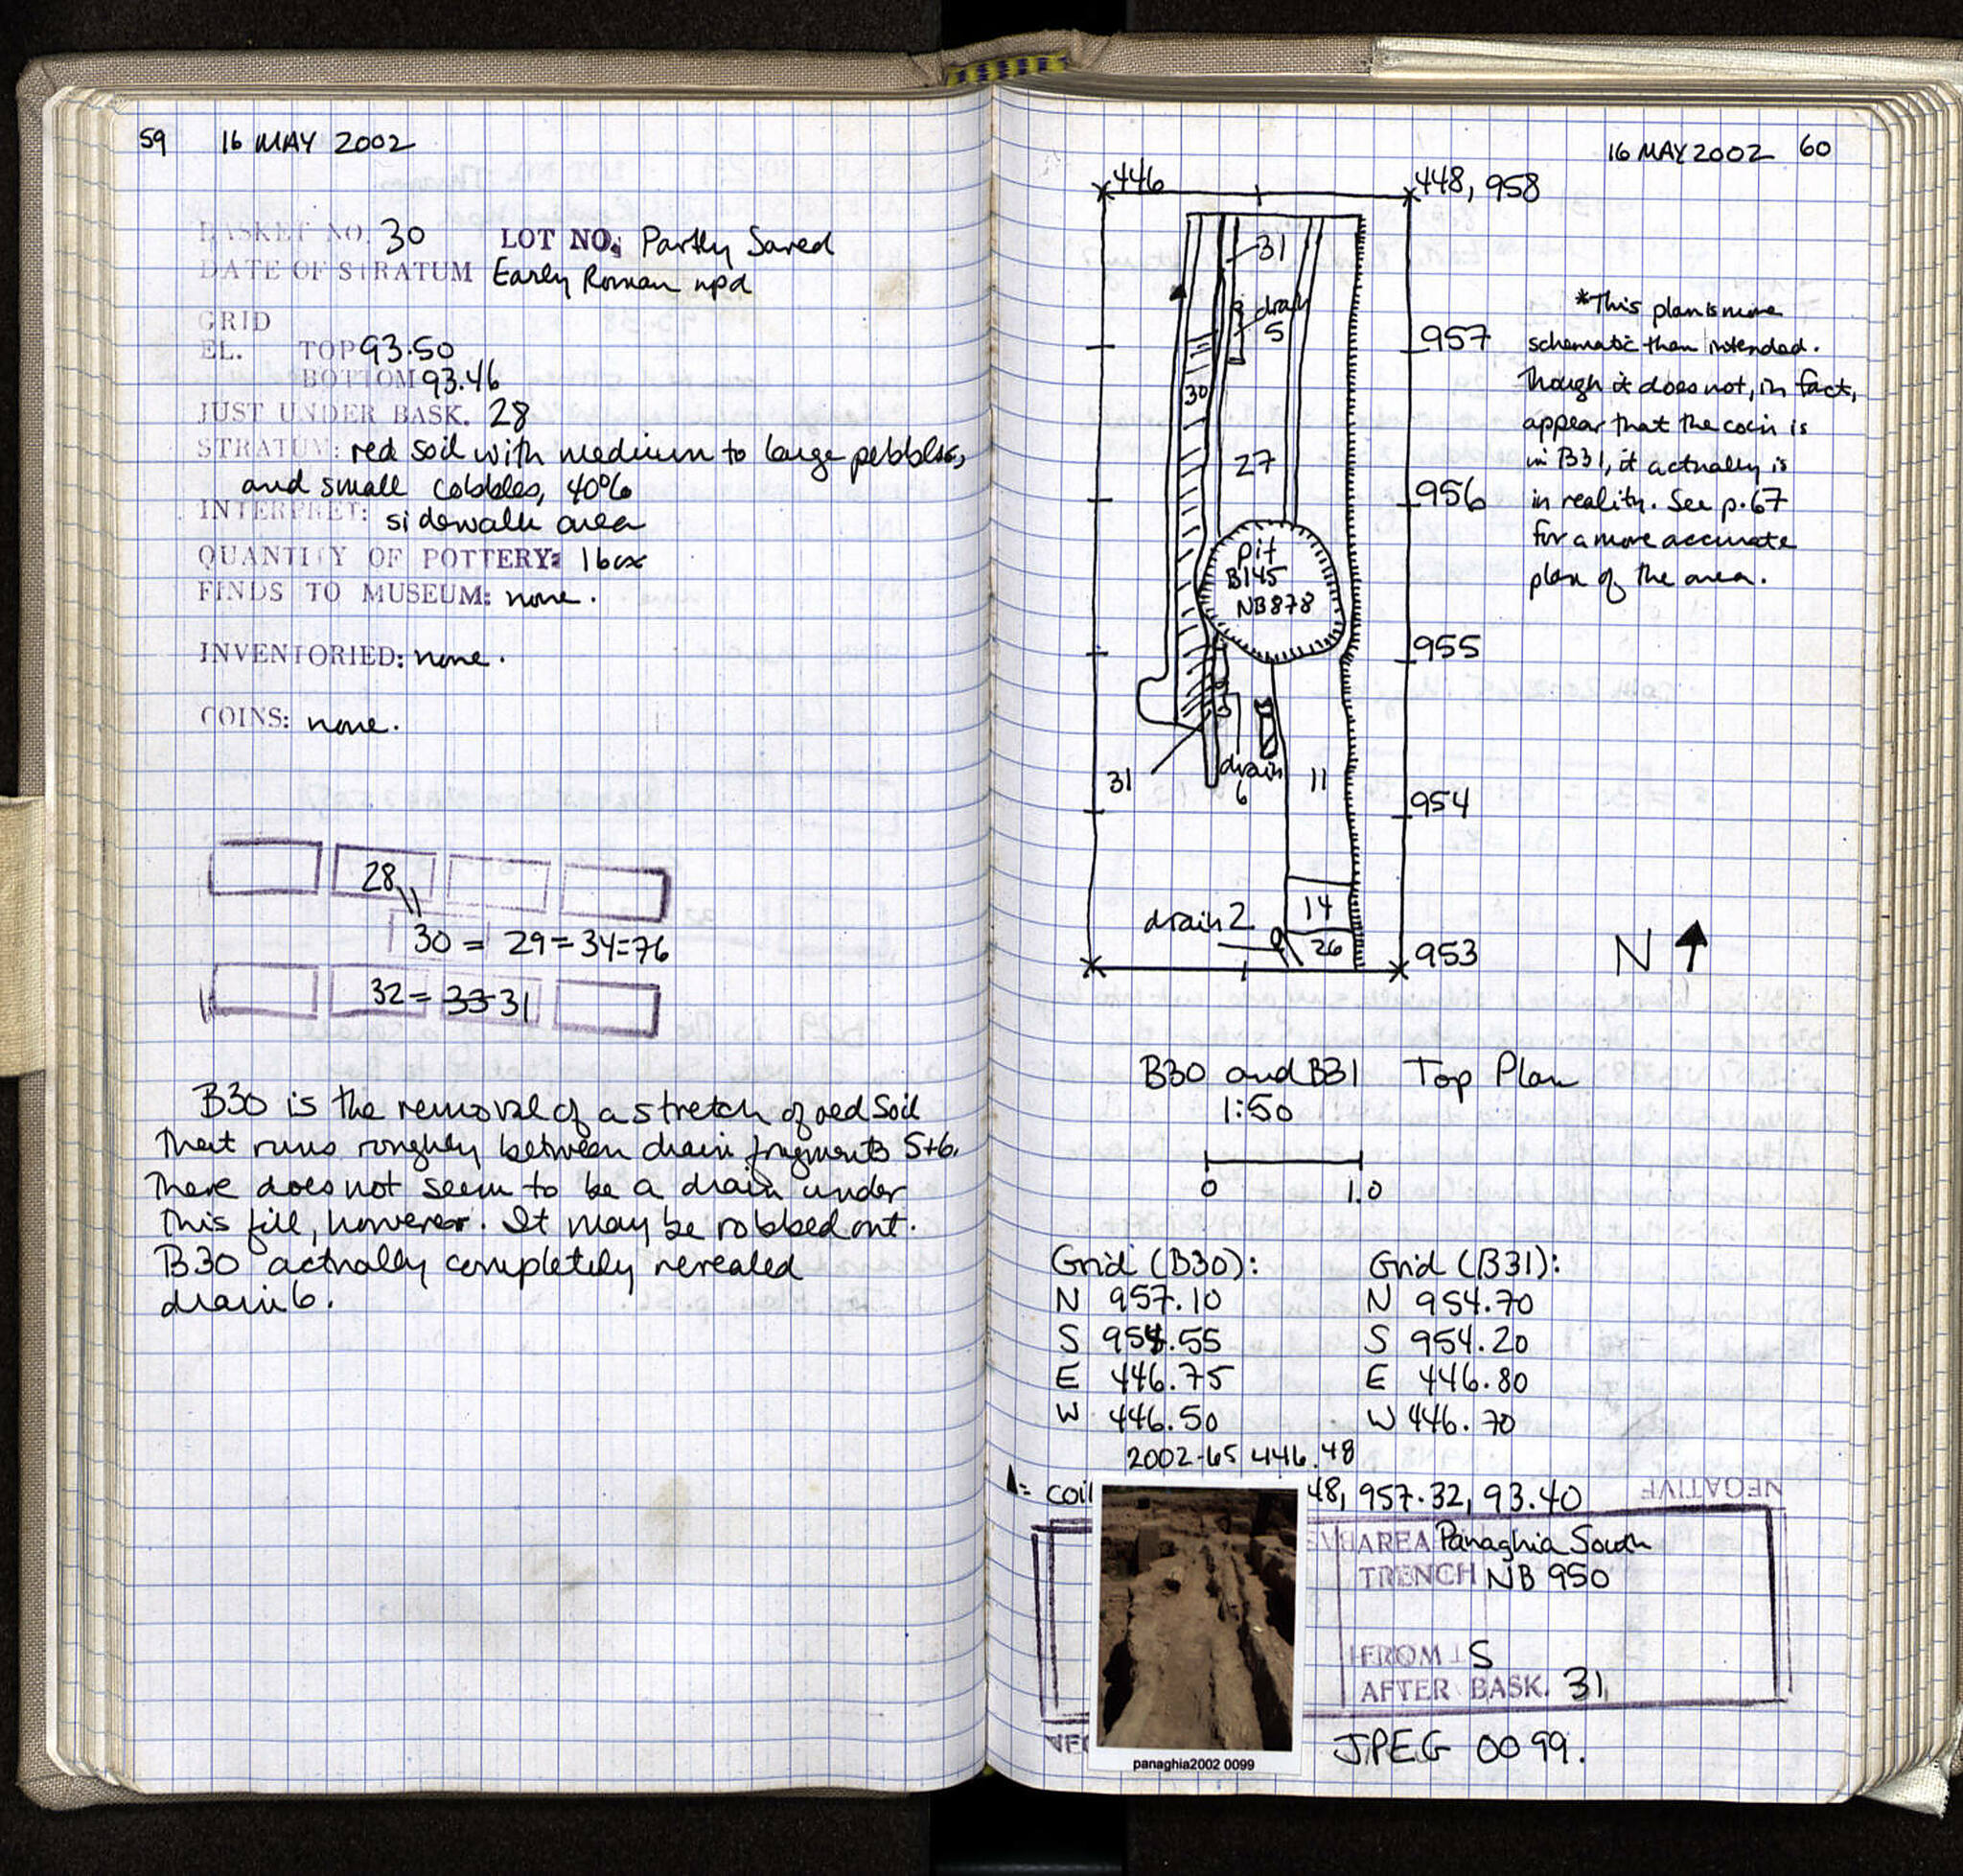 59 16 MAY 2002
BASKET NO. 30 LOT NO. Partly Saved
DATE OF STRATUM Early Roman npd
GRID
EL. TOP 93.50
BOTTOM 93.46
JUST UNDER BASK. 28
STRATUM: red soil with medium to large pebbles,
and small cobbles, 40%
INTERPRET: sidewalk area
QUANTITY OF POTTERY: 16cx
FINDS TO MUSEUM: none.
INVENTORIED: none.
COINS: none.
28
30 = 29 = 34 = 76
32 = 33 31
B30 is the removal of a stretch of red soil
that runs roughly between drain fragments 5+6.
There does not seem to be a drain under
this fill, however. It may be robbed out.
B30 actually completely revealed
drain 6.
16 MAY 2002 60
446 448, 958
31
drain
5
957
30
27
956
pit
B145
NB878
955
31
drain
6
11
954
drain 2
14
26
953
N
*This plan is more
schematic than intended.
Though it does not, in fact,
appear that the coin is
in B31, it actually is
in reality. See p.67
for a more accurate
plan of the area.
B30 and B31 Top Plan
1:50
0 1.0
Grid (B30): Grid (B31):
N 957.10 N 954.70
S 954.55 S 954.20
E 446.75 E 446.80
W 446.50 W 446.70
2002-65 446.48
= coi 48, 957.32, 93.40
NEGATIVE
AREA Panaghia South
TRENCH NB 950
FROM S
AFTER BASK. 31
panaghia2002 0099
JPEG 0099.